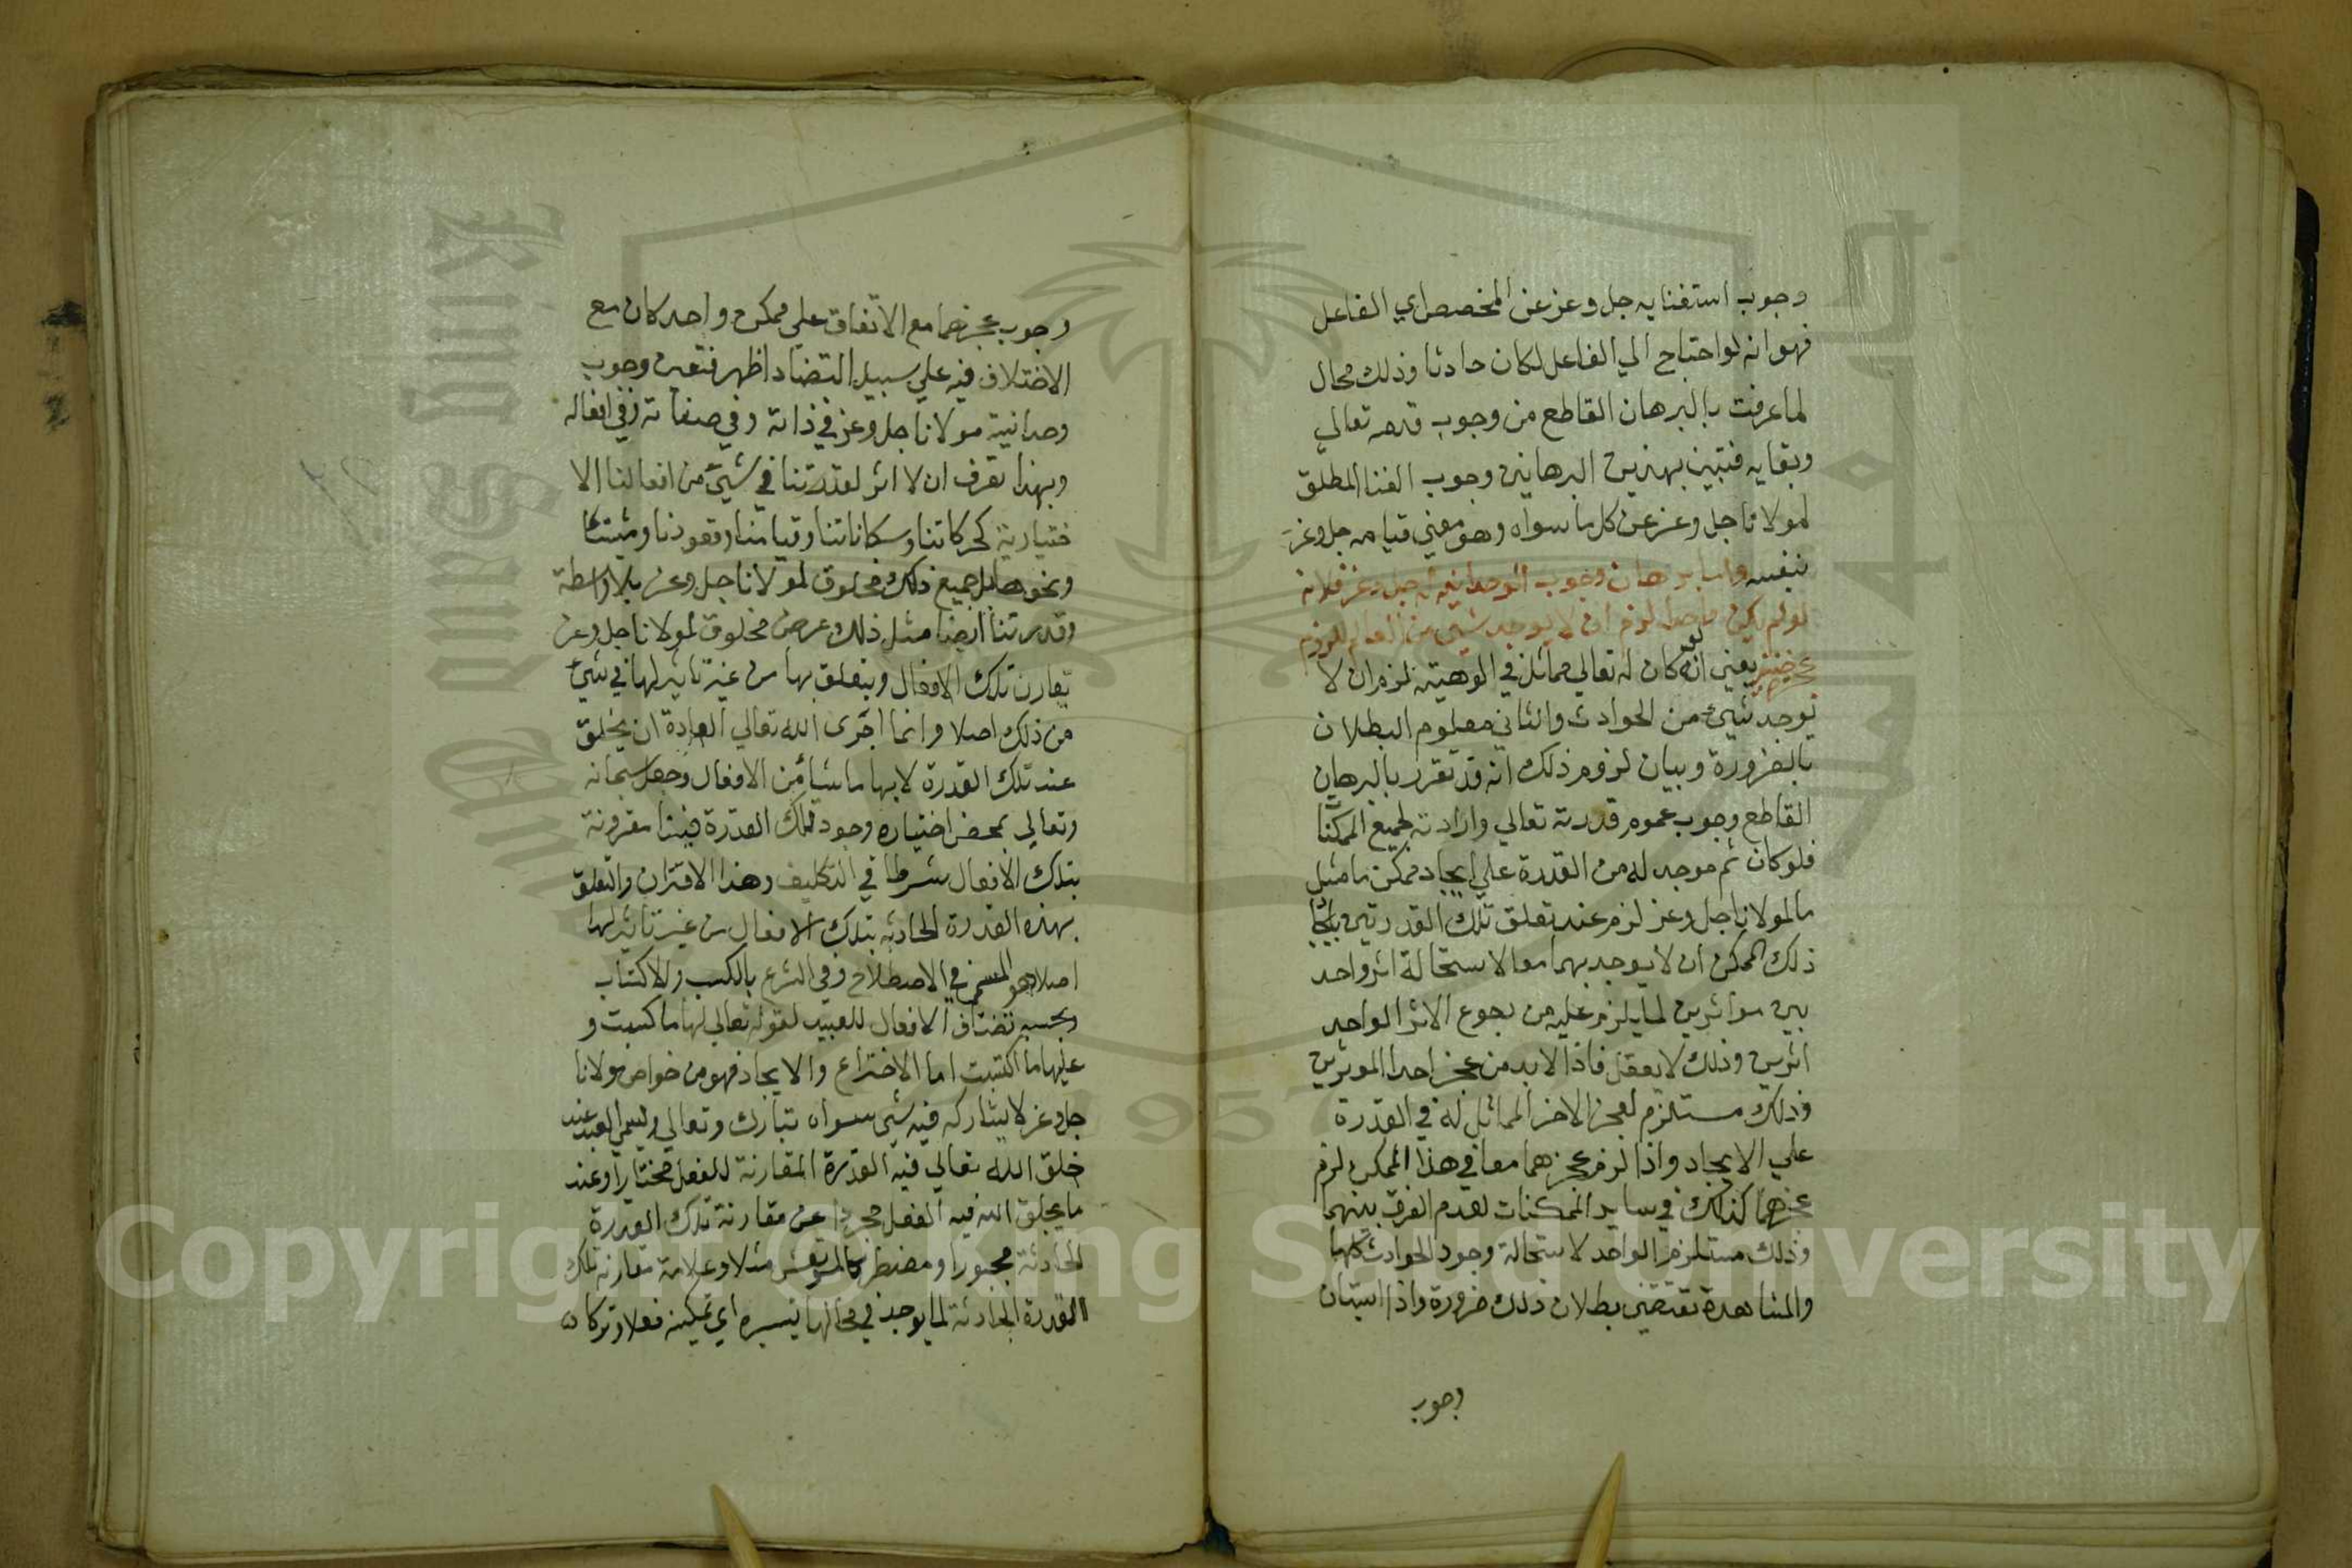 وجوب استغنايه جل وعز عن المخصص اي الفاعل
فهو انه لو احتاج الي الفاعل لكان حادثا وذلك محال
لما عرفت بالبرهان القاطع من وجوب قدمه تعالي
وبقايه فتبين بهذين البرهانين وجوب الغنا المطلق
لمولانا جل وعز عن كل ما سواه وهو معني قيامه جل وعز
بنفسه واما برهان وجوب الوحدانية له جل وعز فلانه
لو لم يكن واحدا لزم ان لا يوجد شي من العالم للزوم
عجزه حينئذ يعني انه لو كان له تعالي مماثل في الوهيته لزم ان لا
يوجد شيئ من الحوادث والثاني معلوم البطلان
بالضرورة وبيان لزوم ذلك انه قد تقرر بالبرهان
القاطع وجوب عموم قدرته تعالي وارادته لجميع الممكنا
فلو كان ثم موجد له من القدرة علي ايجاد ممكن ما مثل
ما لمولانا جل وعز لزم عند تعلق تلك القدرتين بايجا
ذلك الممكن ان لا يوجد بهما معا لاستحالة اثر واحد
بين موثرين لما يلزم عليه من رجوع الاثر الواحد
اثرين وذلك لا يعقل فاذا لابد من عجز احد الموثرين
وذلك مستلزم لعجز الاخر المماثل له في القدرة
علي الايجاد واذا لزم عجزهما معا في هذا الممكن لزم
عجزهما كذلك في ساير الممكنات لعدم الفرق بينهما
وذلك مستلزم الواحد لاستحالة وجود الحوادث كلها
والمشاهدة تقتضي بطلان ذلك ضرورة واذا استبان
وجوب
وجوب عجزهما مع الاتفاق علي ممكن واحد كان مع
الاختلاف فيه علي سبيل التضاد اظهر فتعين وجوب
وحدانية مولانا جل وعز في ذاته وفي صفاته وفي افعاله
وبهذا تعرف ان لا اثر لقدرتنا في شيئ من افعالنا الا
ختيارية كحركاتنا وسكاناتنا وقيامنا وقعودنا ومشينا
ونحوها بل جميع ذلك مخلوق لمولانا جل وعز بلا واسطة
وقدرتنا ايضا مثل ذلك عرض مخلوق لمولانا جل وعز
تقارن تلك الافعال ويتعلق بها من غير تاثير لها في شيئ
من ذلك اصلا وانما اجرى الله تعالي العادة ان يخلق
عند تلك القدرة لا بها ما شا من الافعال وجعل سبحانه
وتعالي بمحض اختياره وجود تلك القدرة فينا مقرونة
بتلك الافعال شرطا في التكليف وهذا الاقتران والتعلق
بهذه القدرة الحادثه بتلك الافعال من غير تاثير لها
اصلا هو المسمى في الاصطلاح وفي الشرع بالكسب والاكتساب
وبحسبه تضاف الافعال للعبيد لقوله تعالي لها ما كسبت و
عليها ما اكتسبت اما الاختراع والايجاد فهو من خواص مولانا
جل وعز لا يشاركه فيه شي سواه تبارك وتعالي ويسمي العبد عند
خلق الله تعالي فيه القدرة المقارنة للفعل مختارا وعند
ما يخلق الله فيه الفعل مجردا عن مقارنة تلك القدرة
الحادثة مجبورا ومضطرا كالمرتعش مثلا وعلامة مقارنة تلك
القدرة الحادثة لما يوجد في محالها تيسيره اي تمكينه فعلا وتركا